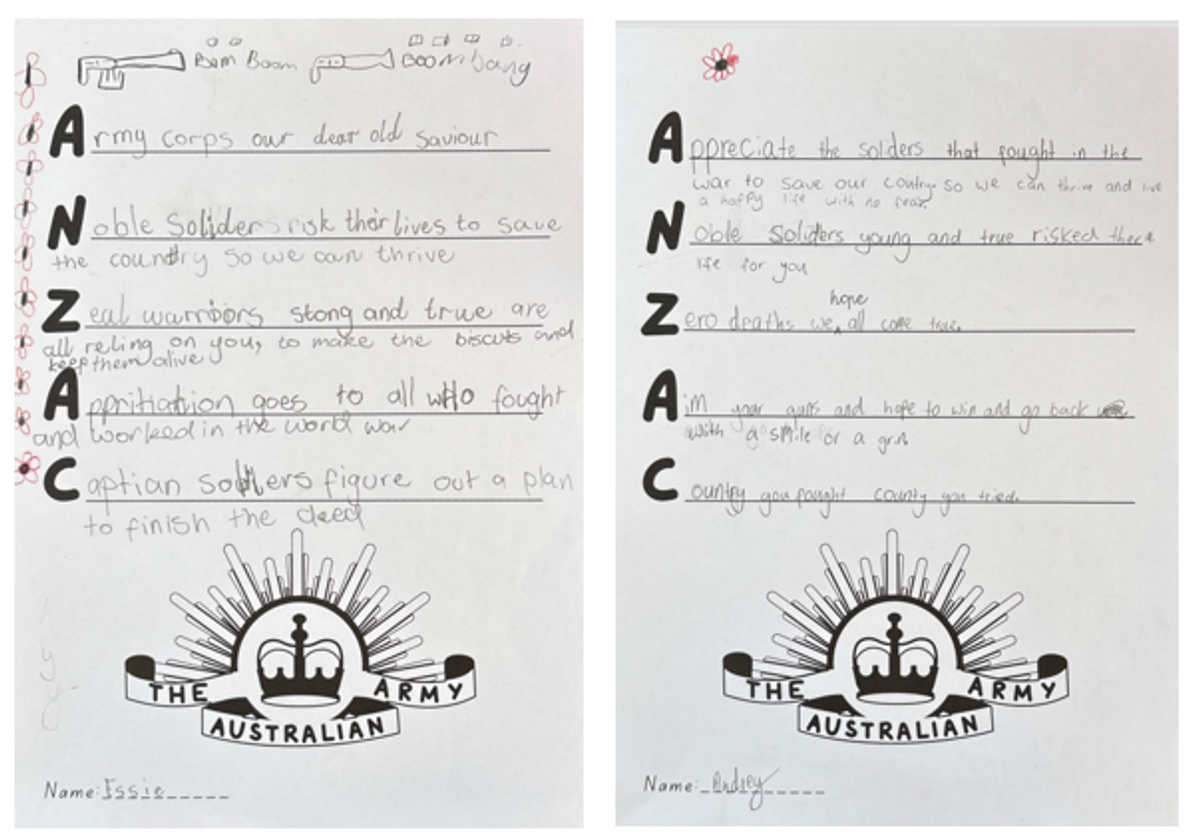 Bam Boom BOOM bang
Army corps our dear old saviour
Noble Soliders risk their lives to save
the country so we can thrive
Zeal warriors stong and true are
all reling on you, to make the biscuts and
keep them alive
Appritiation goes to all who fought
and worked in the world war
Captian soldiers figure out a plan
to finish the deed
THE ARMY
AUSTRALIAN
Name: Essie
Appreciate the soliders that fought in the
war to save our country so we can thrive and live
a happy life with no fear.
Noble Soliders young and true risked there
life for you
hope
Zero deaths we all come true.
Aim your guns and hope to win and go back
with a smile or a grin
Country you fought county you tried.
THE ARMY
AUSTRALIAN
Name: